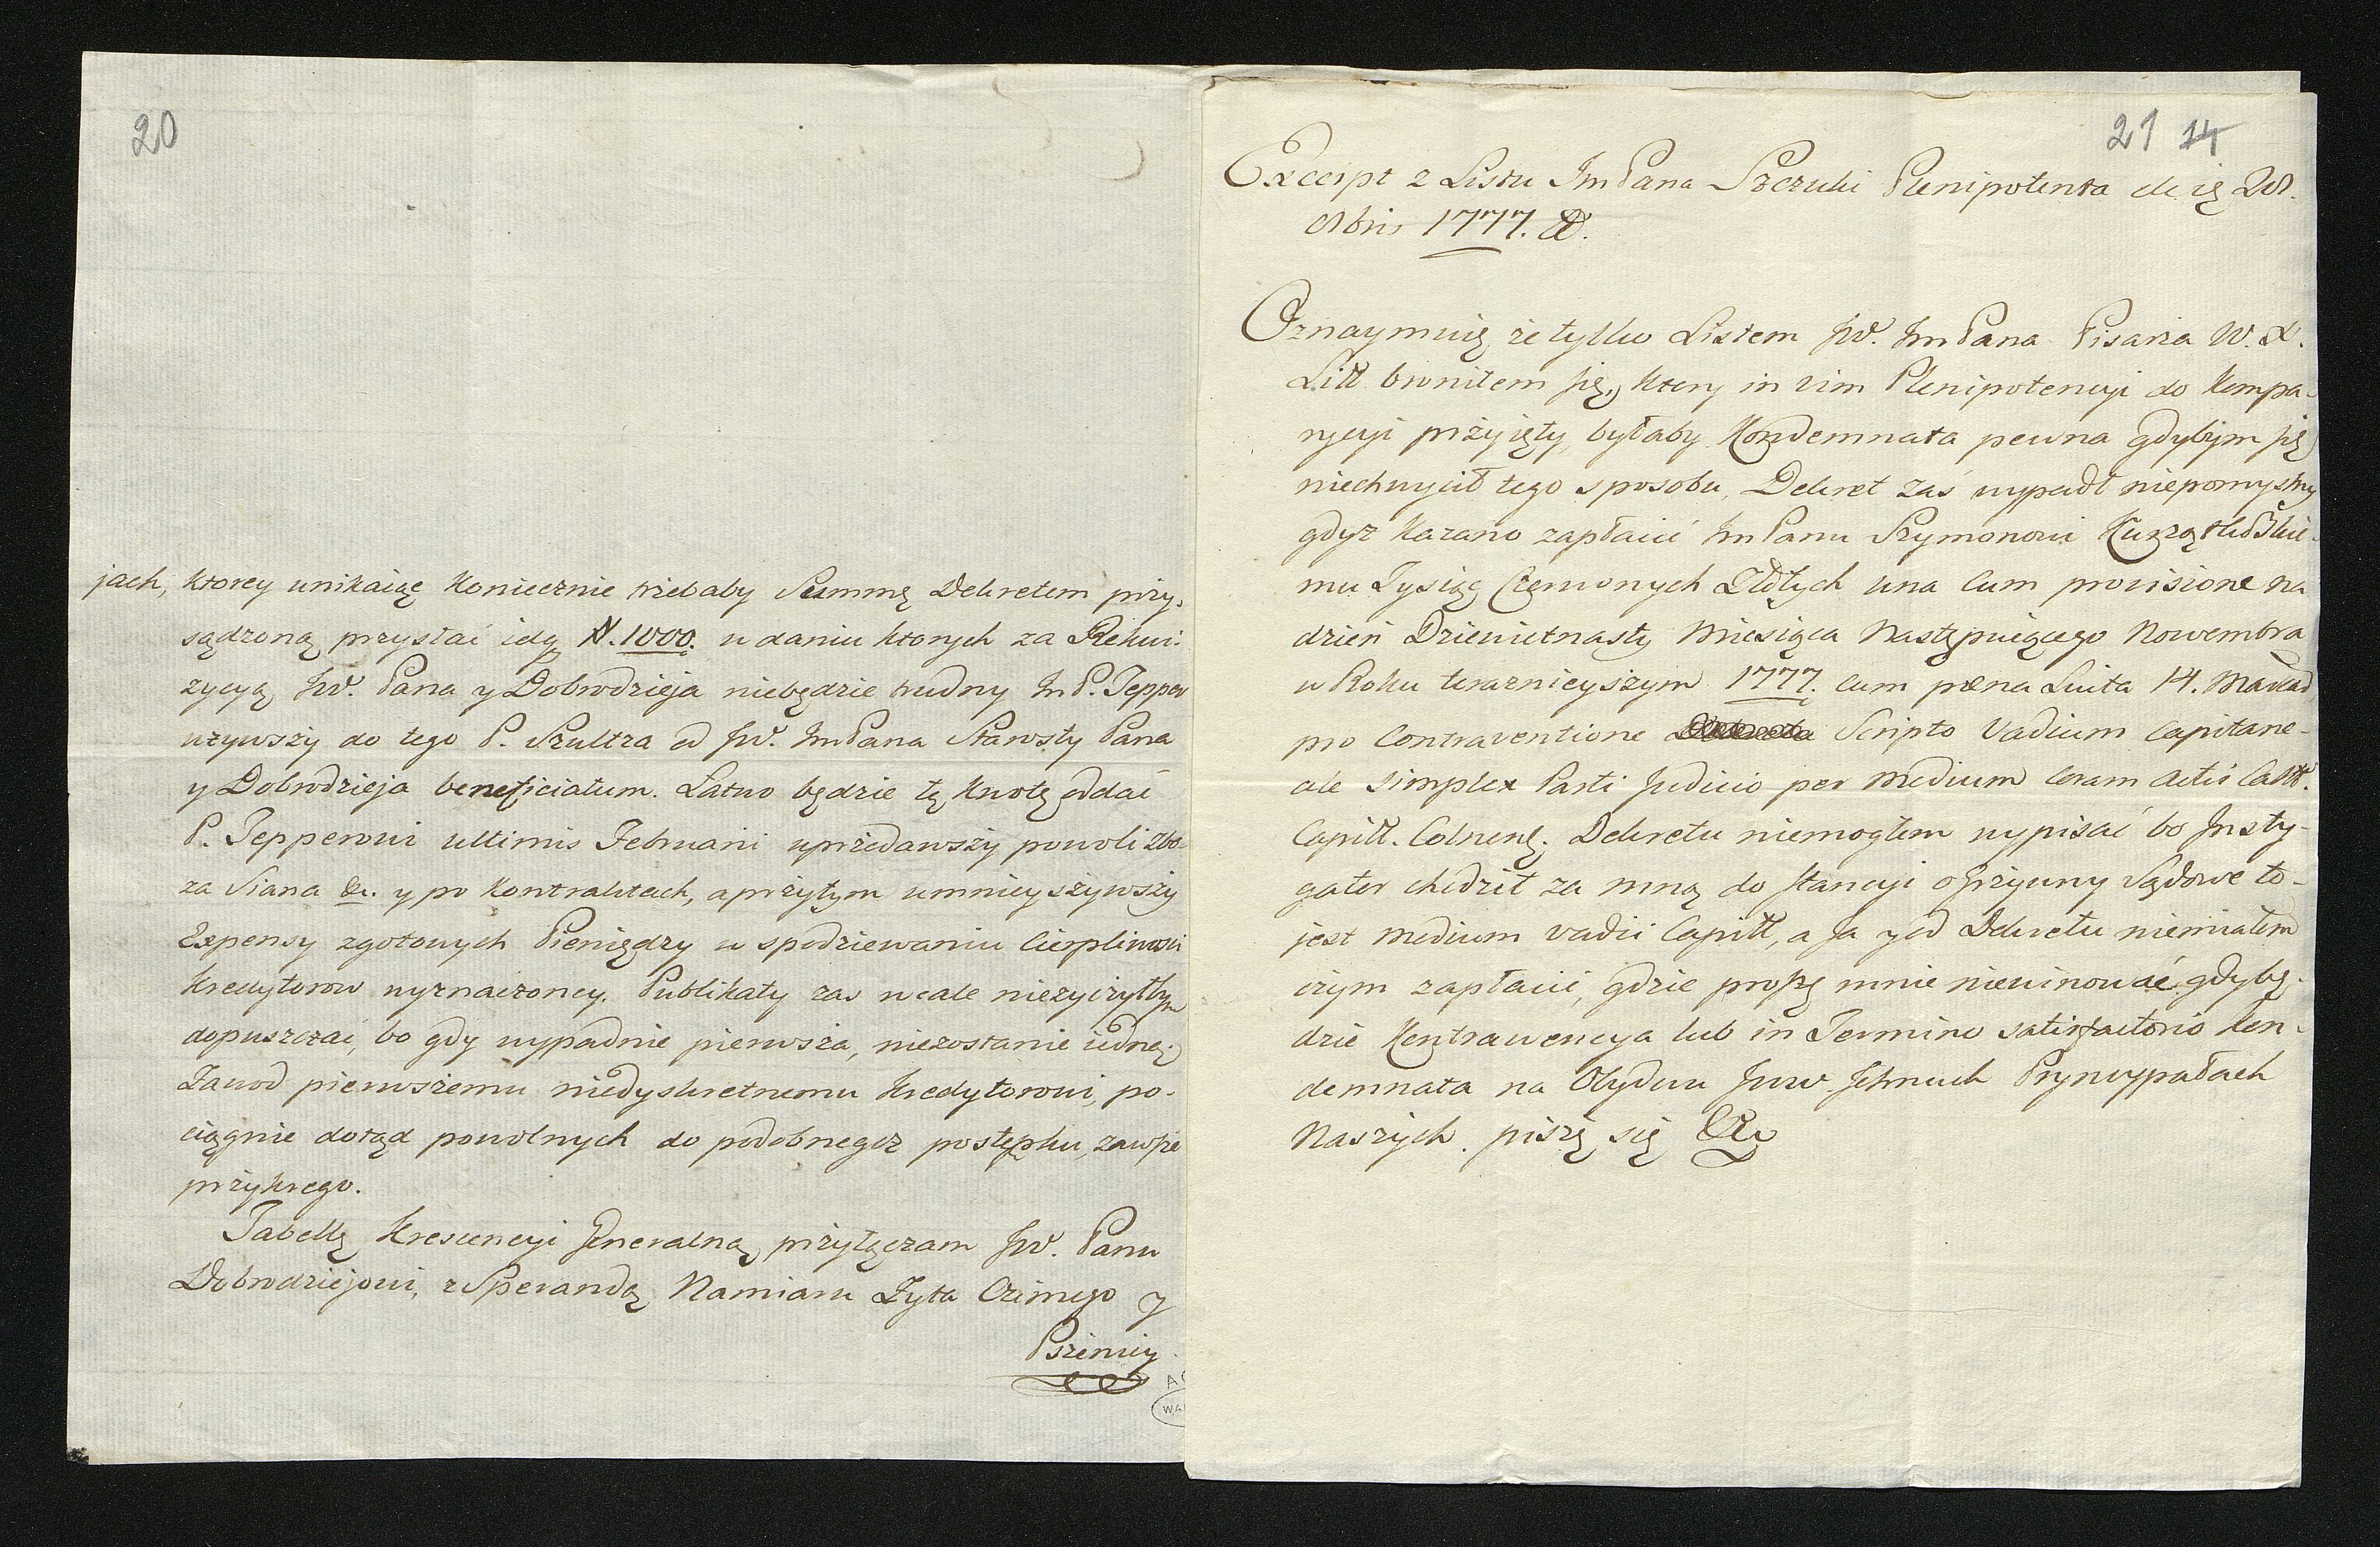 20
jach, ktorey unikaiąc koniecznie trzebaby Summę Dekretem przy-
sądzoną przysłać idq N. 1000. w daniu ktorych za Rekwi-
zycyą JW. Pana y Dobrodzieja niebędzie trudny Im P. Tepper
używszy do tego P. Szultza od JW. Im Pana Starosty Pana
y Dobrodzieja beneficiatum. Łatwo będzie tę kwotę oddać
P. Tepperowi ultimis Februarii uprzedawszy powoli zbo-
ża Siana &c. y po Kontraktach, a przytym umnieyszywszy
Expensy zgotowych Pieniędzy w spodziewaniu Cierpliwości
Kredytorow wyznaczoney. Publikaty zas wcale nieżyczyłbym
dopuszczać, bo gdy wypadnie pierwsza, niezostanie iedney
Zawod pierwszemu niedyskretnemu Kredytorowi, po-
ciągnie dotąd powolnych do podobnegoż postępku, zawsze
przykrego.
Tabellę Krescencyi Generalną przyłączam JW. Panu
Dobrodziejowi, z Sperandą Namiaru Żyta Ozimego y
Pszenicy
21 14
Excerpt z Listu Im Pana Szczuki Plenipotenta de 28
8bris 1777.
Oznaymuię że tylko Listem JW. Im Pana Pisarza W. X.
Litt broniłem się, ktory in vim Plenipotencyi do Kompa-
rycyi przyięty, byłaby Kondemnata pewna gdybym się
niechwycił tego sposobu, Dekret zaś wypadł niepomyslny
gdyż kazano zapłacić Im Panu Szymonowi
mu Tysiąc Czerwonych Złotych una cum provisione na
dzień Dziewietnasty Miesiąca Następuiącego Nowembra
w Roku teraznieyszym 1777. cum pœna Luita 14. Marcar
pro Contraventione Scripto Vadium Capitane-
ale simplex Parti Judicio per medium coram Actis Castr.
Capitt. Colnens. Dekretu niemogłem wypisać bo Insty-
gator chodził za mną do stancyi o przywiny Sądowe to-
jest medium vadii Capitt, a Ja y od Dekretu niemiałem
czym zapłacić, gdzie proszę mnie niewinować gdy bę-
dzie Kontrawencya lub in Termino satisfactorio Kon-
demnata na Obydwu Jww Jchmciach Pryncypałach
Naszych. piszę się &c